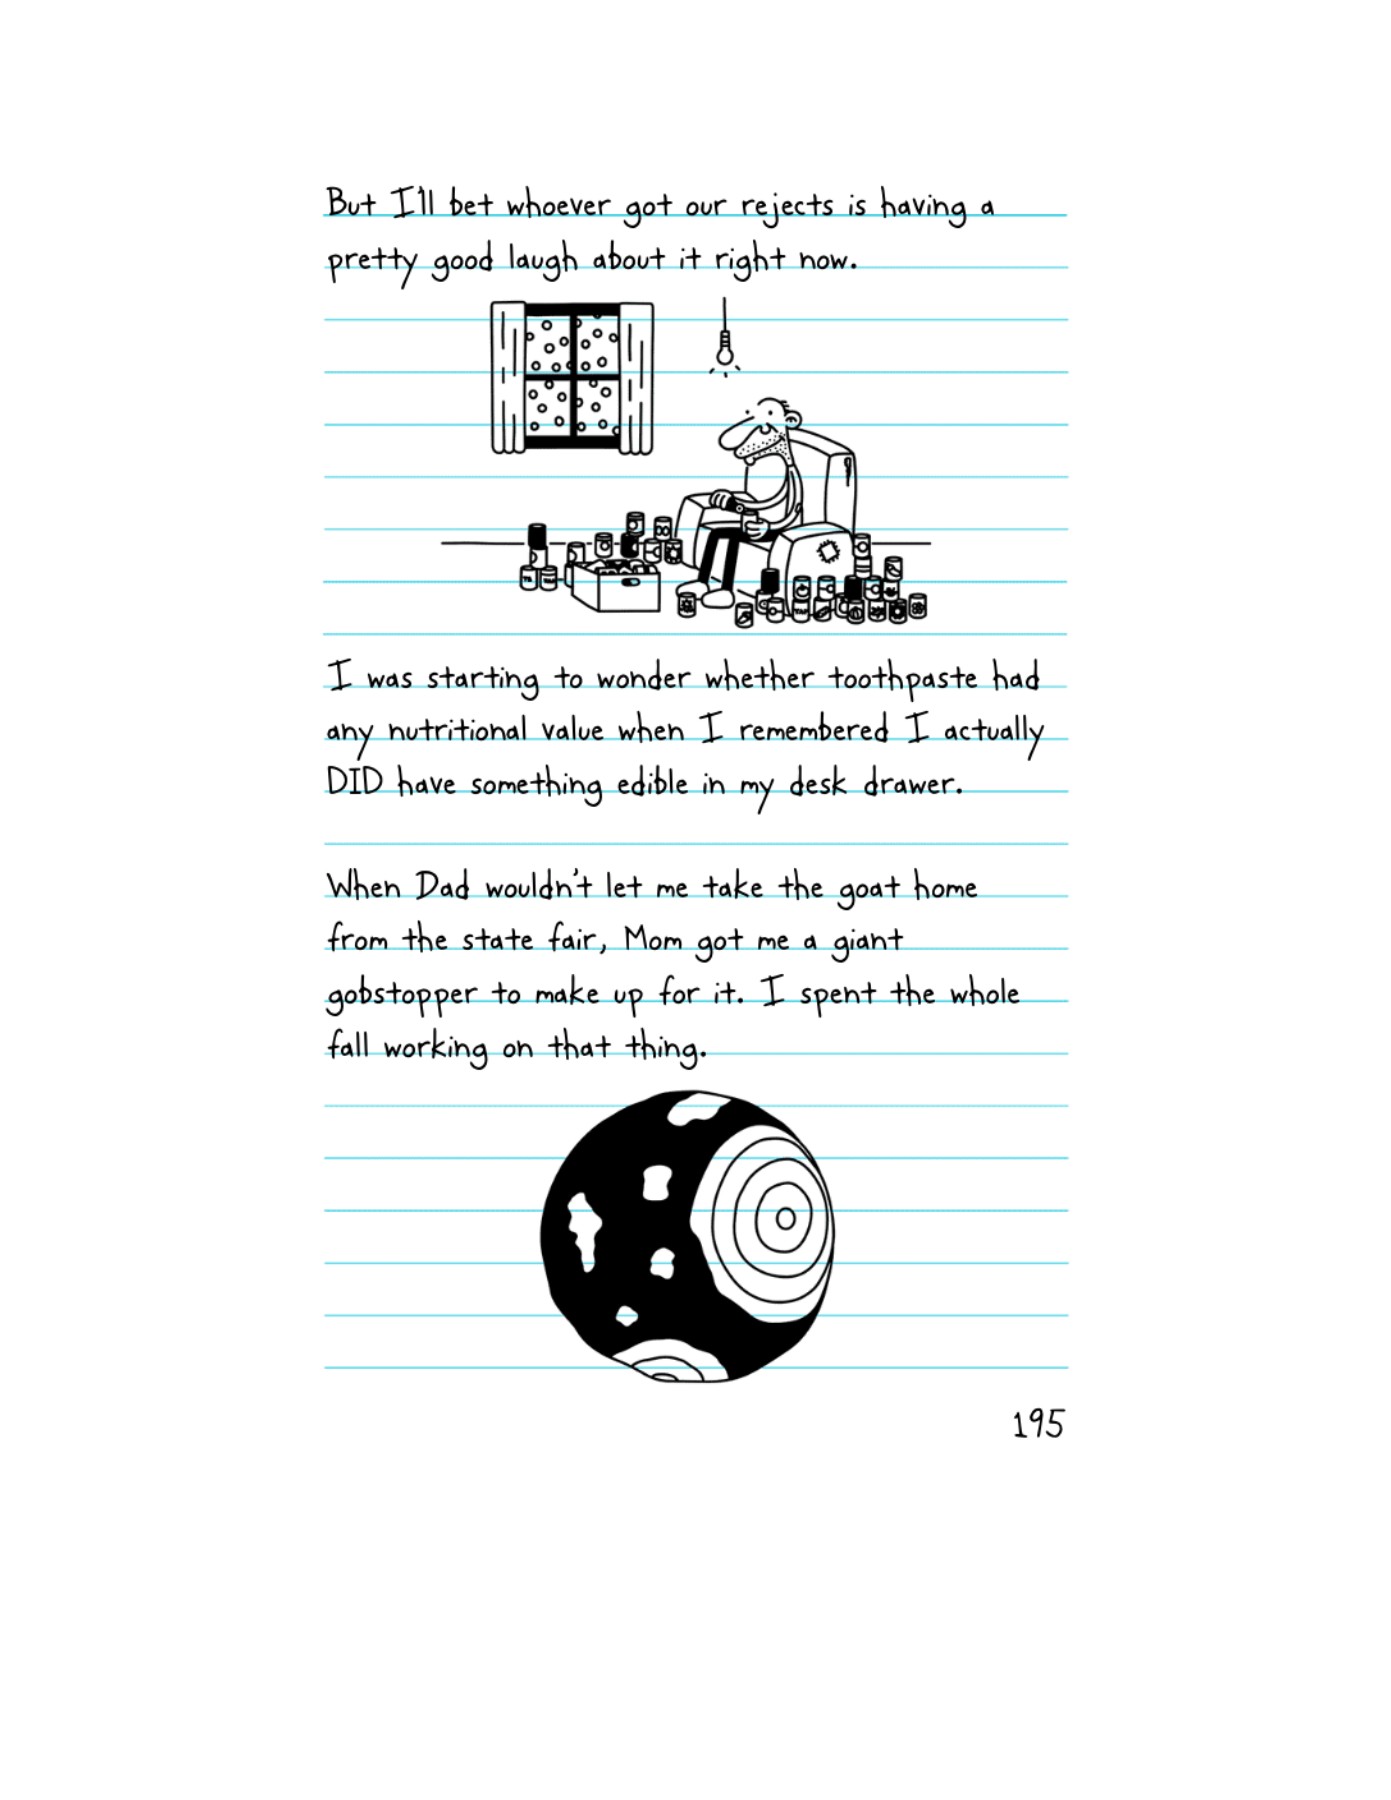 But I'll bet whoever got our rejects is having a
pretty good laugh about it right now.
I was starting to wonder whether toothpaste had
any nutritional value when I remembered I actually
DID have something edible in my desk drawer.
When Dad wouldn't let me take the goat home
from the state fair, Mom got me a giant
gobstopper to make up for it. I spent the whole
fall working on that thing.
195